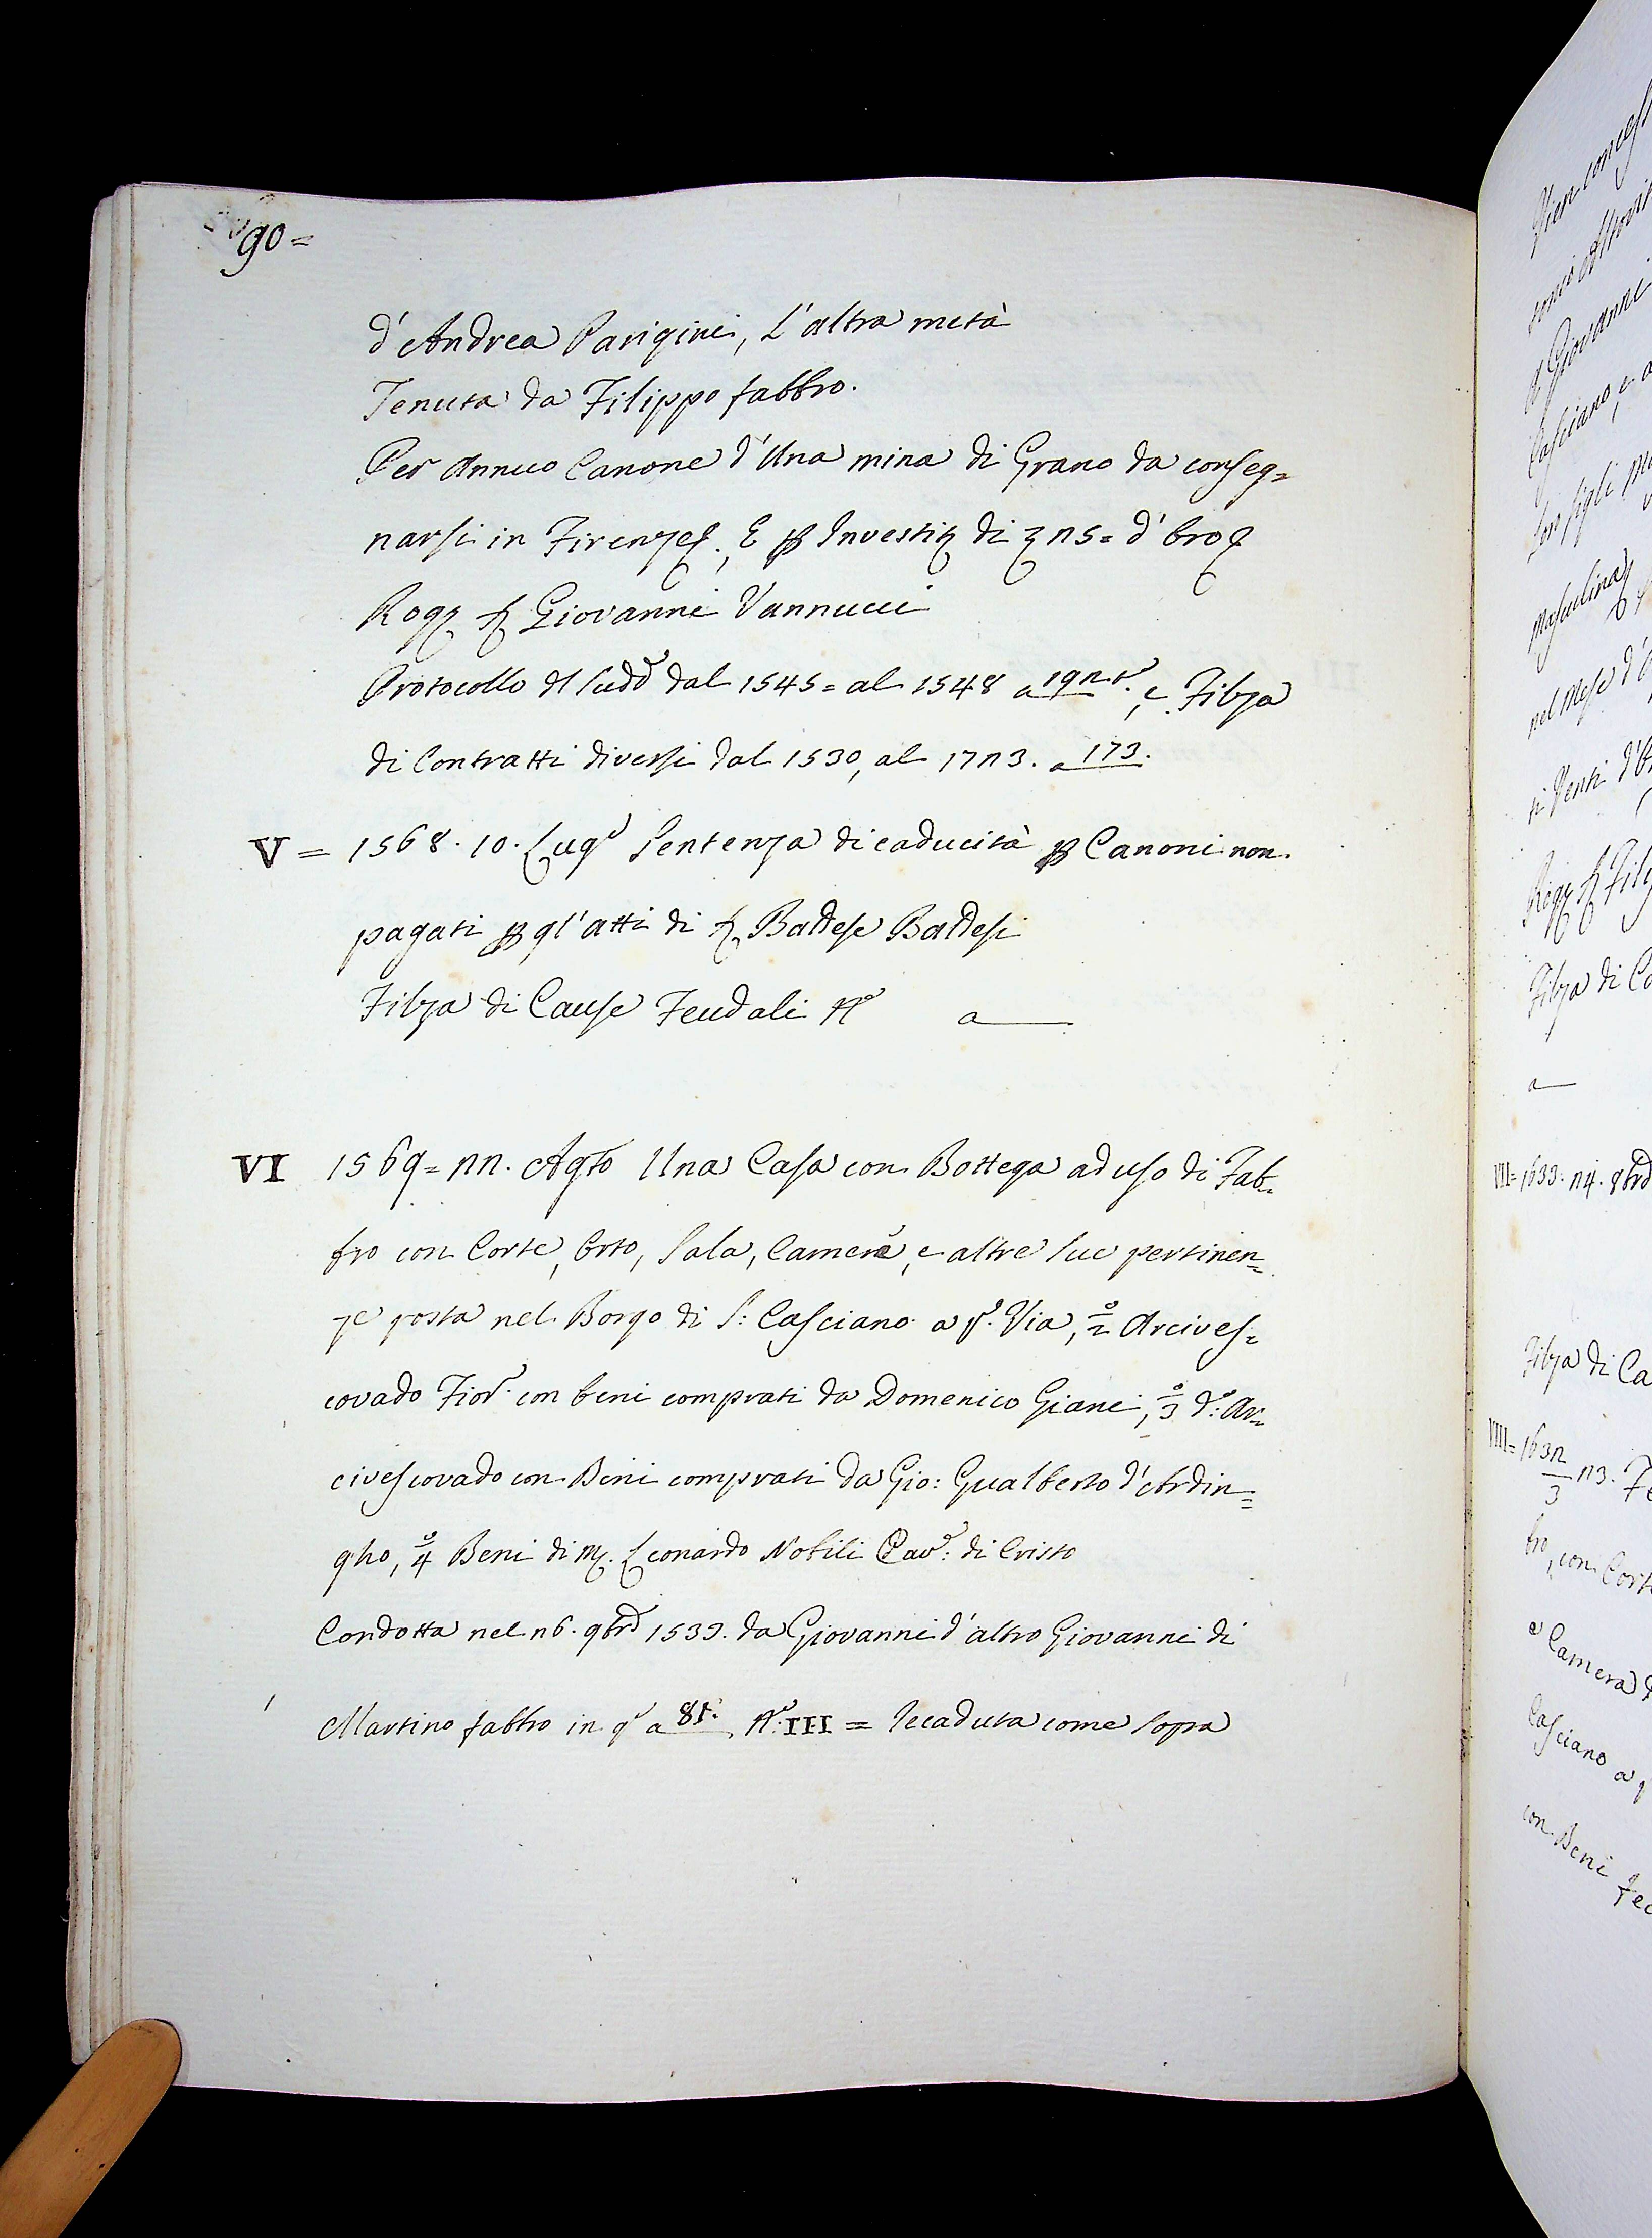 90=
d'Andrea Parigini, L'altra metà
Tenuta da Filippo fabbro.
Per Annuo Canone d'Una mina di Grano da conseg=
narsi in Firenze, E p Investit di £ 25= d'oro
Rog S Giovanni Vannucci
Protocollo dl sudo dal 1545= al 1548 a 192 t. e Filza
di Contratti diversi dal 1530, al 1723. a 173.
V= 1568. 10. Lugo Sentenza di caducità p Canoni non
pagati p gl'atti di S. Baldese Baldesi
Filza di Cause Feudali No a
VI 1569= 22. Agto Una Casa con Bottega ad uso di Fab=
bro con Corte, Orto, Sala, Camera, e altre sue pertinen=
ze posta nel Borgo di S: Casciano a po. Via, 2o Arcives=
covado Fiord. con beni comprati da Domenico Giani, 3o do: Ar=
civescovado con Beni comprati da Gio: Gualberto d'Ardin=
gho, 4o Beni di M. Leonardo Nobili Cavo: di Cristo
Condotta nel 26. 9bre 1533. da Giovanni d'altro Giovanni di
Martino fabbro in qo a 81. No: III = Recaduta come sopra
VII= 1633. 24. 8bre
Filza di Ca
VIII= 1632
3
23.
bro, con Cort
e Camera
Casciano a p
con Beni